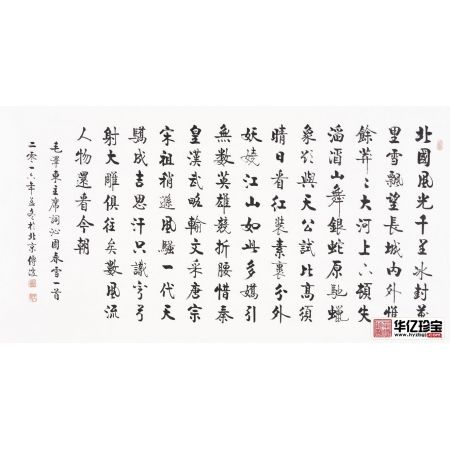 北國風光千里冰封萬
里雪飄望長城內外惟
餘莽〻大河上下頓失
滔滔山舞銀蛇原馳蠟
象欲與天公試比高須
晴日看紅裝素裹分外
妖嬈江山如此多嬌引
無數英雄競折腰惜秦
皇漢武略輸文采唐宗
宋祖稍遜風騷一代天
驕成吉思汗只識彎弓
射大雕俱往矣數風流
人物還看今朝
毛澤東主席詞沁園春雪一首
二零一六年於北京
华亿珍宝